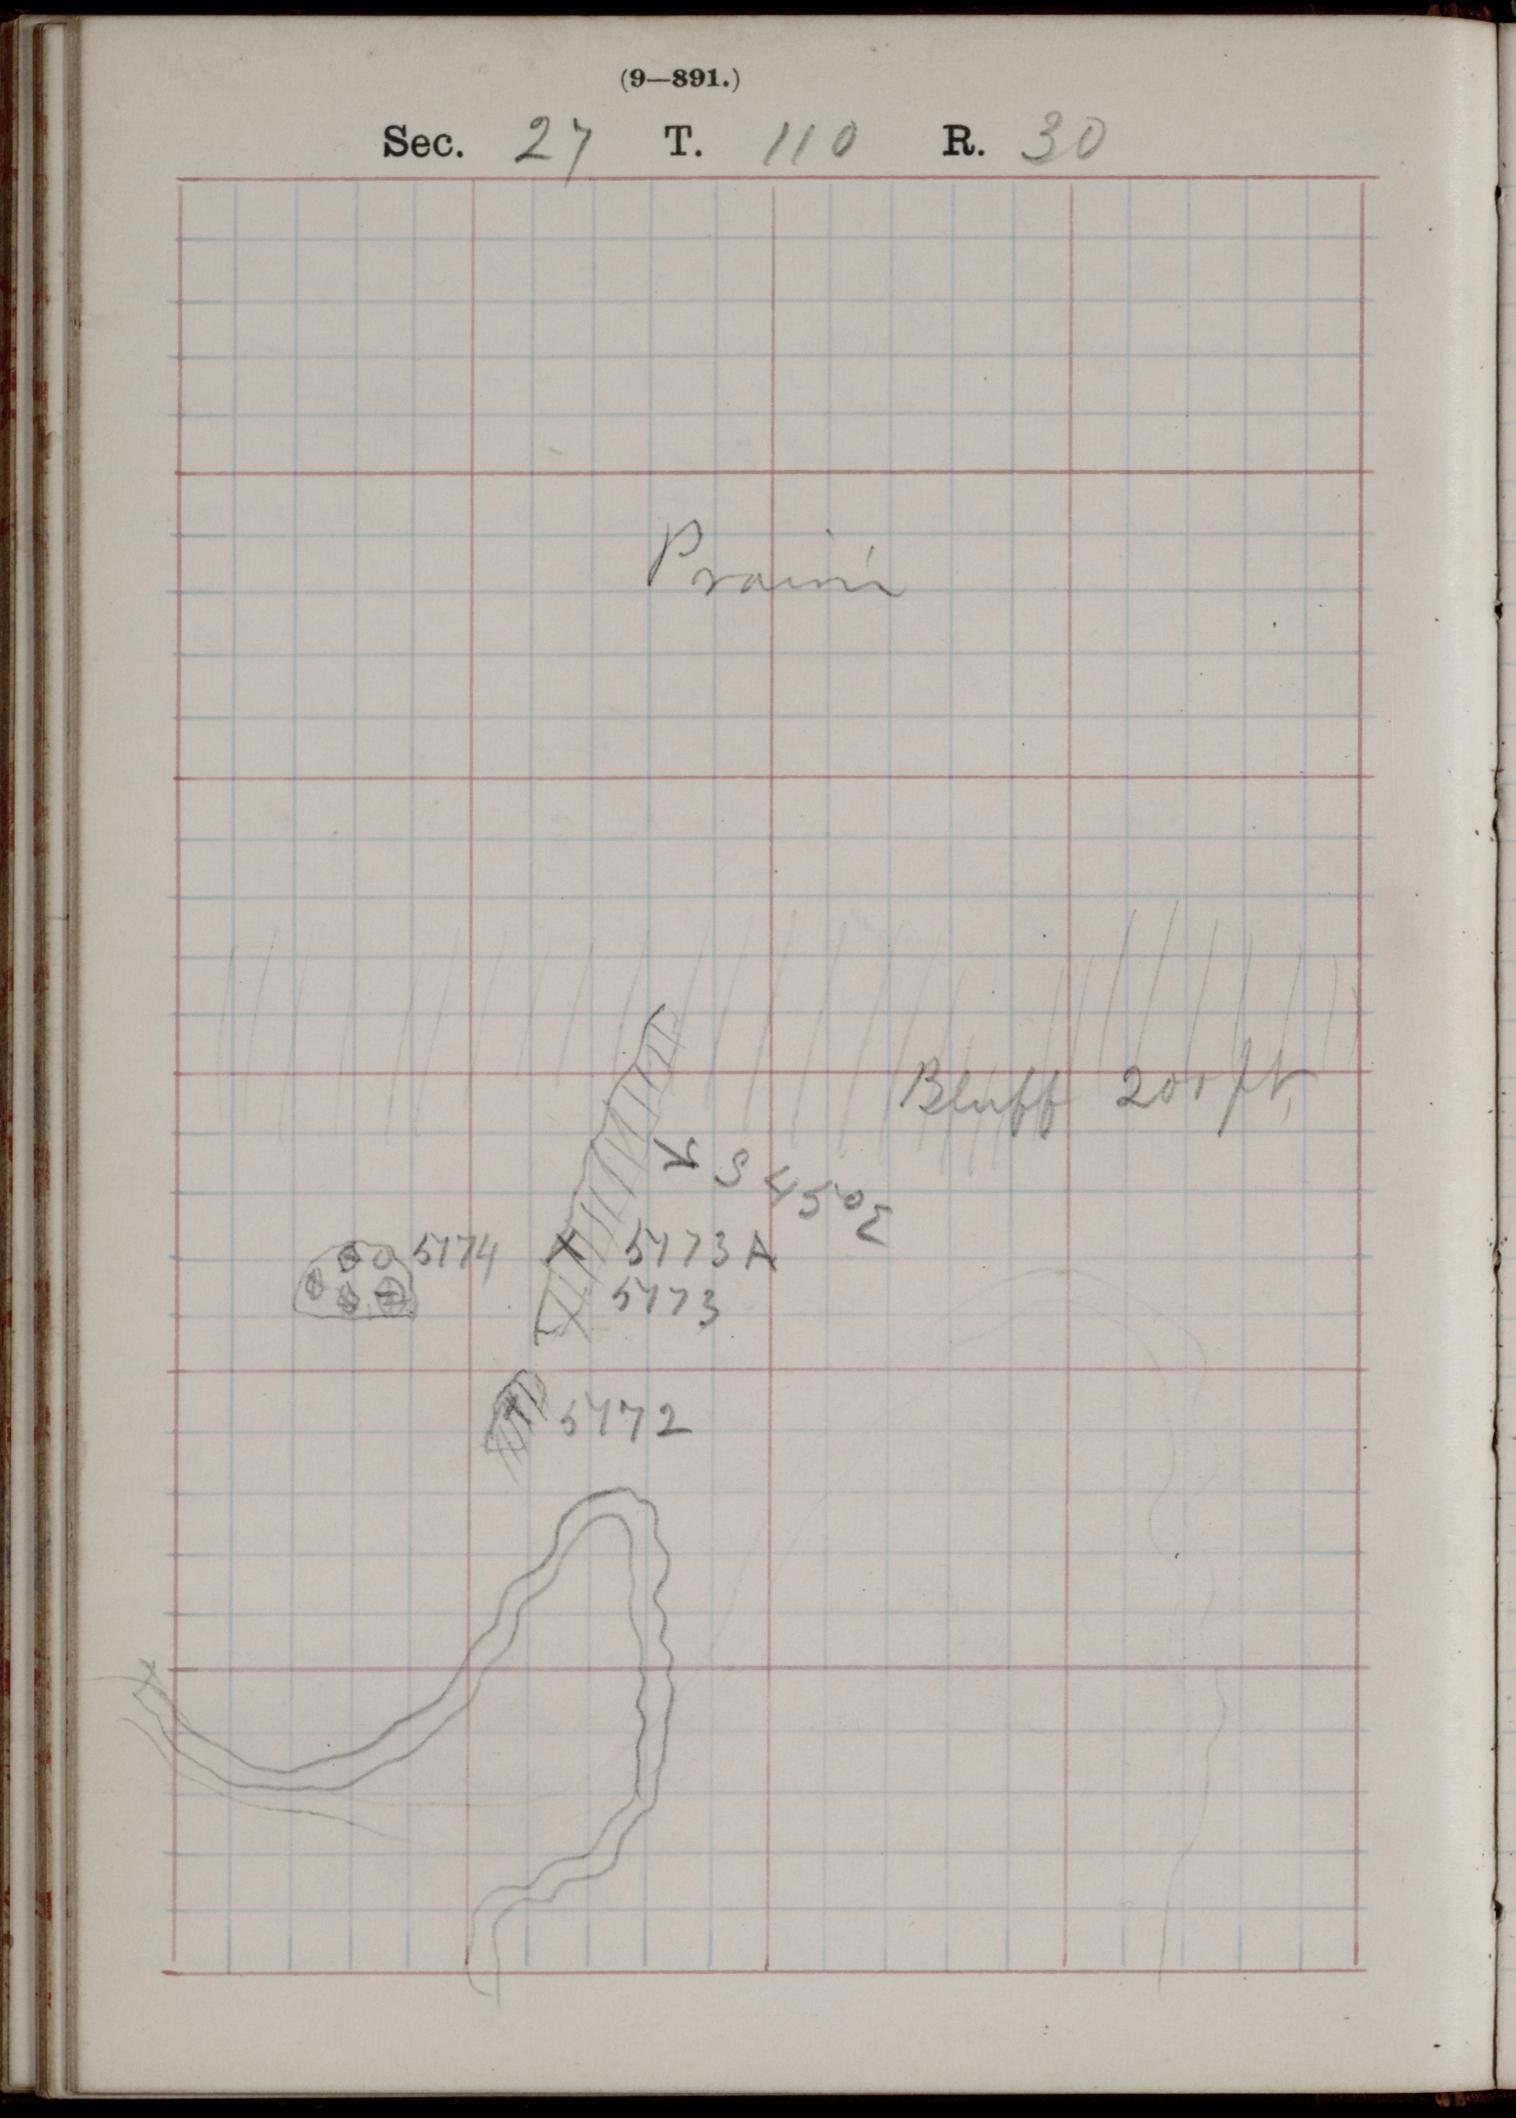 (9—891.)
Sec. 27 T. 110 R. 30
Prairie
Bluff 200 ft.
S 45° E
5174
5173 A
5173
5172